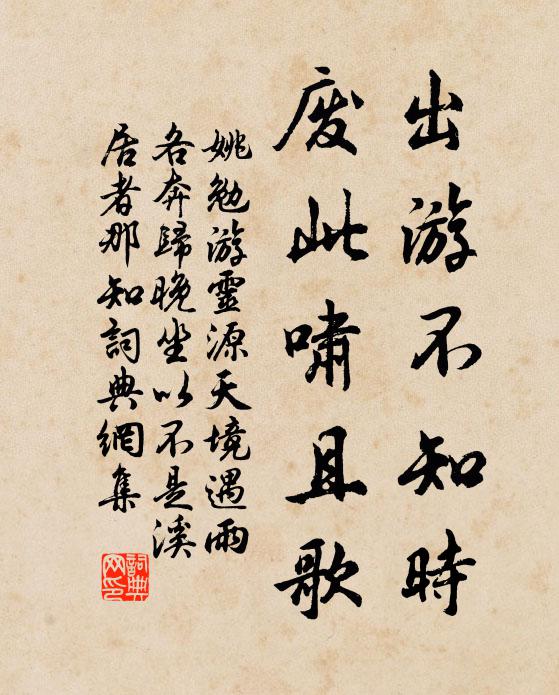 出游不知時
废此啸且歌
姚勉游靈源天境遇雨
各奔歸晚坐以不是溪
居者那知詞典網集
詞典
网印